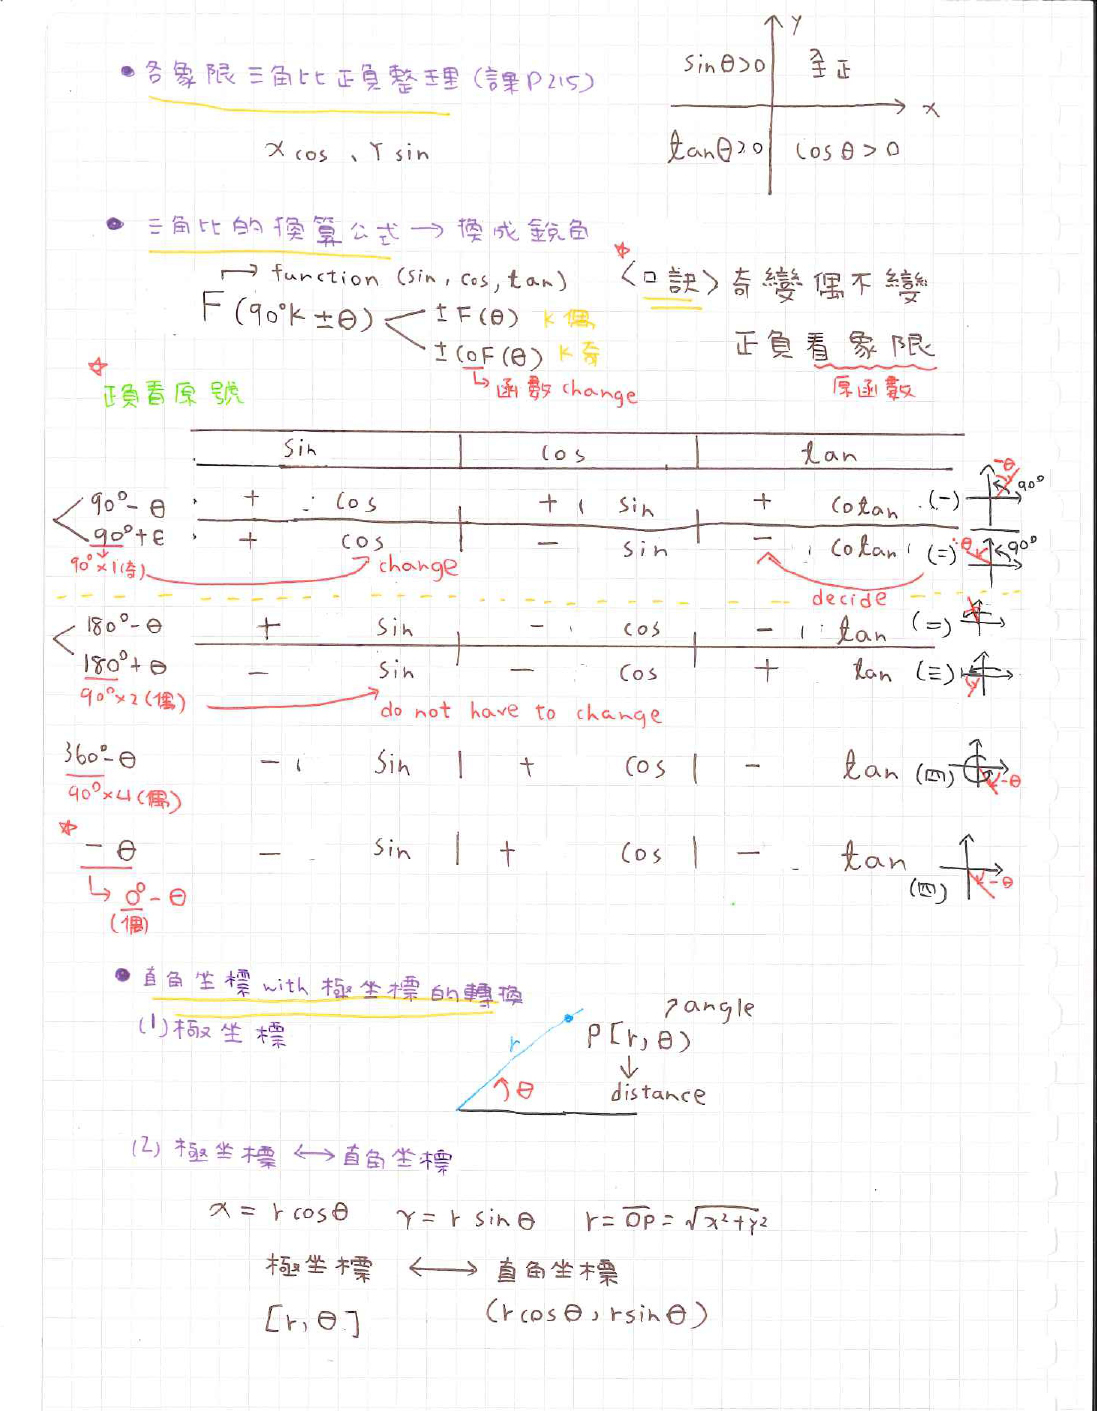 Y
sinθ>0 全正
• 各象限三角比正負整理(課P215)
x
x cos 、Y sin
tanθ>0 cosθ>0
• 三角比的換算公式→換成銳角
function (sin, cos, tan)
☆〈口訣〉奇變偶不變
F(90°K±θ)
±F(θ) K偶
±coF(θ) K奇
正負看象限
☆
正負看原號
↳函數change
原函數
sin | cos | tan
90°-θ + cos + sin + cotan (一) -θ 90°
90°+θ + cos | - sin | - cotan (二) θ 90°
90°×1(奇) change
decide
180°-θ + sin | - cos | - tan (二)
180°+θ - sin - cos + tan (三)
90°×2(偶)
do not have to change
360°-θ - sin | + cos | - tan (四) -θ
90°×4(偶)
☆
-θ - sin | + cos | - tan (四) -θ
↳ 0°-θ
(偶)
• 直角坐標with極坐標的轉換
(1)極坐標
↗angle
r P[r,θ)
↓
θ distance
(2) 極坐標 ↔ 直角坐標
x = r cosθ Y = r sinθ r = OP = √x²+y²
極坐標 ↔ 直角坐標
[r,θ] (rcosθ,rsinθ)